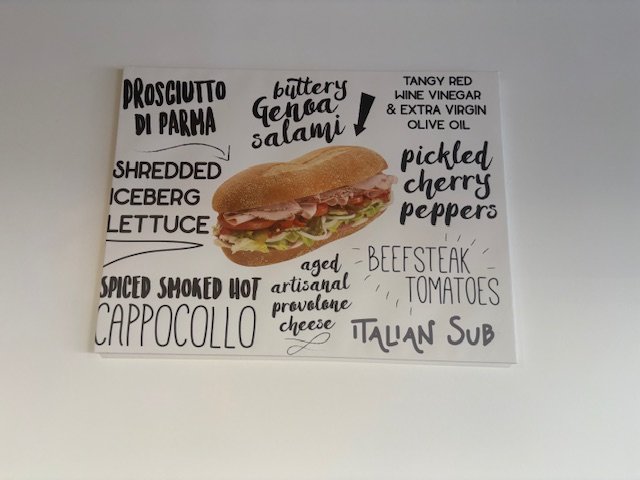 PROSCIUTTO
DI PARMA
buttery
Genoa
salami
TANGY RED
WINE VINEGAR
& EXTRA VIRGIN
OLIVE OIL
SHREDDED
ICEBERG
LETTUCE
pickled
cherry
peppers
SPICED SMOKED HOT
CAPPOCOLLO
aged
artisanal
provolone
cheese
BEEFSTEAK
TOMATOES
ITALIAN SUB